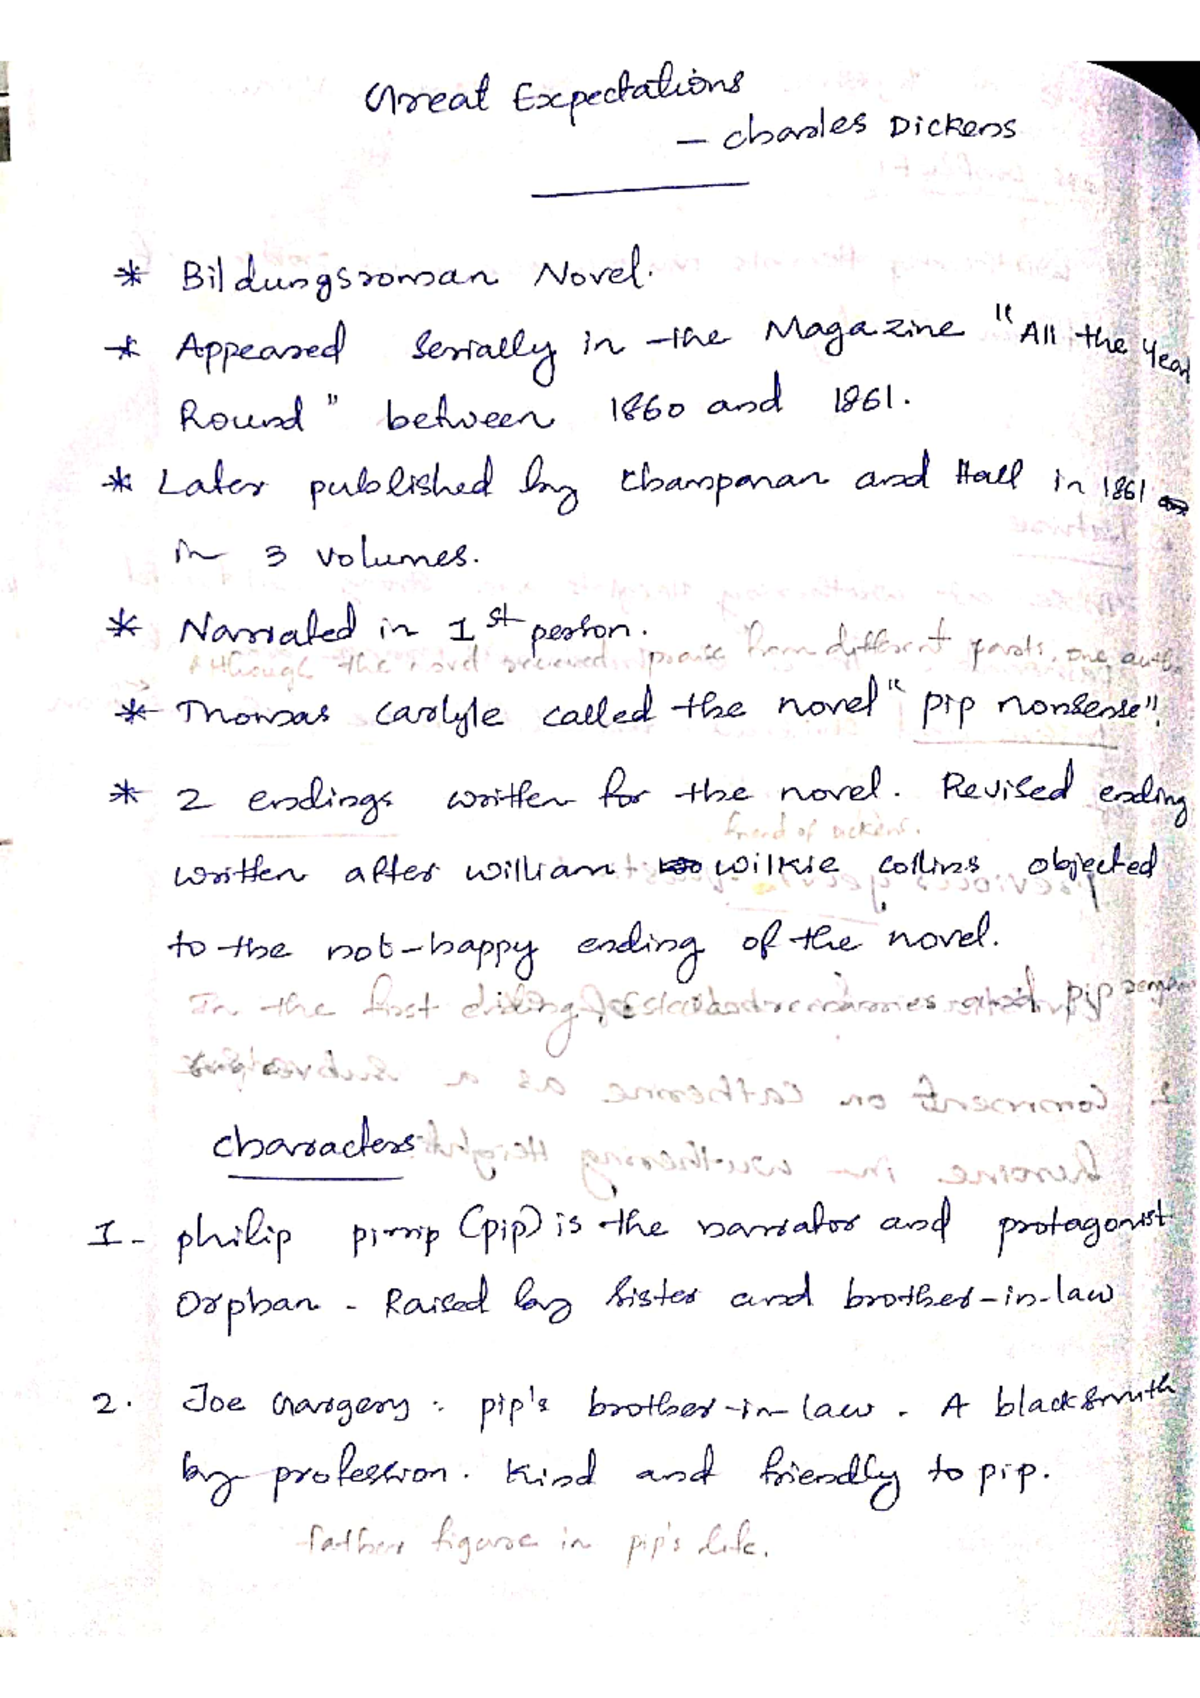 Great Expectations
- Charles Dickens
* Bildungsroman Novel.
* Appeared serially in the Magazine "All the Year
Round" between 1860 and 1861.
* Later published by Champanan and Hall in 1861
in 3 volumes.
* Narrated in 1st person.
Although the novel received praise from different parts, one auth
* Thomas Carlyle called the novel "pip nonsense".
* 2 endings written for the novel. Revised ending
friend of Dickens.
written after william wilkie collins objected
to the not-happy ending of the novel.
In the first ending pip
characters
1- philip pirrip (pip) is the narrator and protagonist
Orphan - Raised by sister and brother-in-law
2. Joe Gargery : pip's brother-in-law. A blacksmith
by profession. Kind and friendly to pip.
father figure in pip's life.